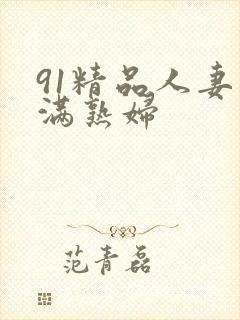 91精品人妻
满熟妇
范青磊